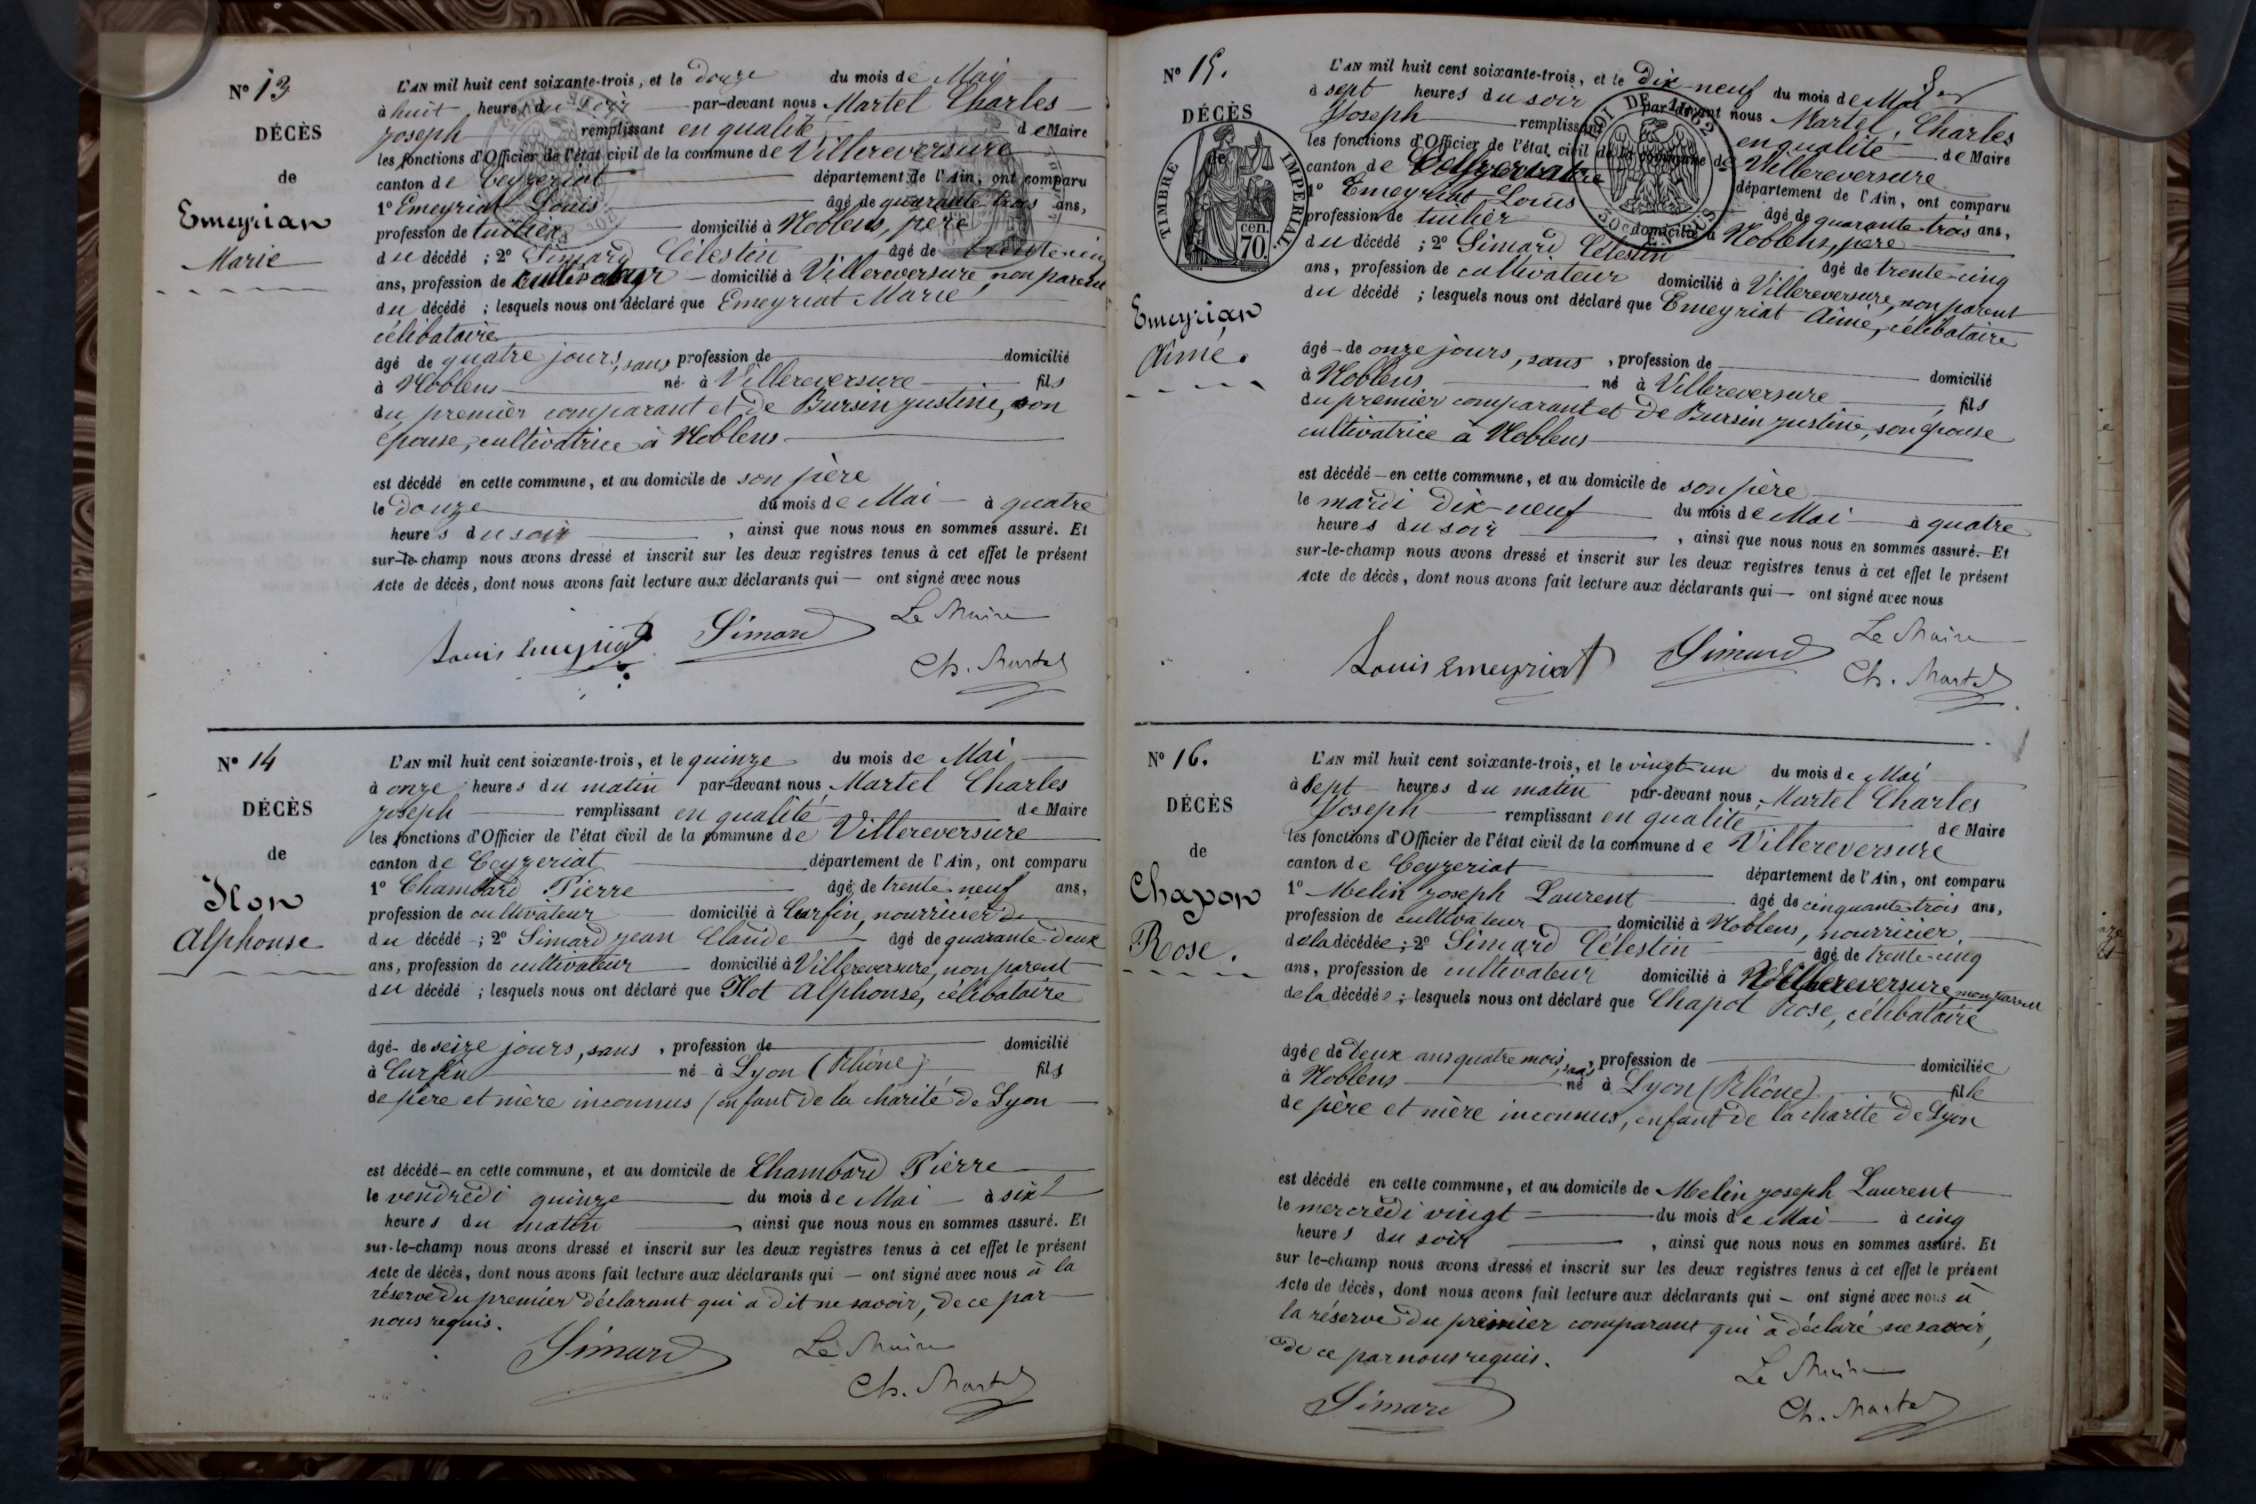 N° 13
DÉCÈS
de
Emeyriat
Marie
L'AN mil huit cent soixante-trois, et le douze du mois de Mai
à huit heures du soir par-devant nous Martel Charles
Joseph remplissant en qualité de Maire
les fonctions d'Officier de l'état civil de la commune de Villereversure
canton de Ceyzeriat département de l'Ain, ont comparu
1° Emeyriat Louis âgé de quarante trois ans,
profession de tuilier domicilié à Noblens, père
du décédé ; 2° Simard Célestin âgé de trente-cinq
ans, profession de cultivateur domicilié à Villereversure, non parent
du décédé ; lesquels nous ont déclaré que Emeyriat Marie
célibataire
âgé de quatre jours, sans profession de domicilié
à Noblens né à Villereversure fils
du premier comparant et de Bursin Justine, son
épouse, cultivatrice à Noblens
est décédé en cette commune, et au domicile de son père
le douze du mois de Mai à quatre
heures du soir , ainsi que nous nous en sommes assuré. Et
sur-le-champ nous avons dressé et inscrit sur les deux registres tenus à cet effet le présent
Acte de décès, dont nous avons fait lecture aux déclarants qui — ont signé avec nous
Louis Emeyriat Simard Le Maire
Ch. Martel
N° 14
DÉCÈS
de
Flot
Alphonse
L'AN mil huit cent soixante-trois, et le quinze du mois de Mai
à onze heures du matin par-devant nous Martel Charles
Joseph remplissant en qualité de Maire
les fonctions d'Officier de l'état civil de la commune de Villereversure
canton de Ceyzeriat département de l'Ain, ont comparu
1° Chambard Pierre âgé de trente-neuf ans,
profession de cultivateur domicilié à Curfin, nourricier du
du décédé ; 2° Simard Jean Claude âgé de quarante-deux
ans, profession de cultivateur domicilié à Villereversure, non parent
du décédé ; lesquels nous ont déclaré que Flot Alphonse, célibataire
âgé de seize jours, sans , profession de domicilié
à Curfin né à Lyon (Rhône) fils
de père et mère inconnus (enfant de la charité de Lyon
est décédé en cette commune, et au domicile de Chambard Pierre
le vendredi quinze du mois de Mai à six
heures du matin , ainsi que nous nous en sommes assuré. Et
sur-le-champ nous avons dressé et inscrit sur les deux registres tenus à cet effet le présent
Acte de décès, dont nous avons fait lecture aux déclarants qui — ont signé avec nous à la
réserve du premier déclarant qui a dit ne savoir, de ce par
nous requis.
Simard Le Maire
Ch. Martel
N° 15.
DÉCÈS
de
TIMBRE IMPÉRIAL.
cen. 70.
Emeyriat
Aimé.
LOI DE 1862
L'AN mil huit cent soixante-trois, et le Dix-neuf du mois de Mai
à sept heures du soir par-devant nous Martel, Charles
Joseph remplissant en qualité de Maire
les fonctions d'Officier de l'état civil de la commune de Villereversure
canton de Ceyzeriat département de l'Ain, ont comparu
1° Emeyriat Louis âgé de quarante-trois ans,
profession de tuilier domicilié à Noblens, père
du décédé ; 2° Simard Célestin âgé de trente-cinq
ans, profession de cultivateur domicilié à Villereversure, non parent
du décédé ; lesquels nous ont déclaré que Emeyriat Aimé, célibataire
âgé de onze jours, sans , profession de domicilié
à Noblens né à Villereversure fils
du premier comparant et de Bursin Justine, son épouse
cultivatrice à Noblens
est décédé en cette commune, et au domicile de son père
le mardi dix-neuf du mois de Mai à quatre
heures du soir , ainsi que nous nous en sommes assuré. Et
sur-le-champ nous avons dressé et inscrit sur les deux registres tenus à cet effet le présent
Acte de décès, dont nous avons fait lecture aux déclarants qui — ont signé avec nous
Louis Emeyriat Simard Le Maire
Ch. Martel
N° 16.
DÉCÈS
de
Chapot
Rose.
L'AN mil huit cent soixante-trois, et le vingt-un du mois de Mai
à Sept heures du matin par-devant nous, Martel Charles
Joseph remplissant en qualité de Maire
les fonctions d'Officier de l'état civil de la commune de Villereversure
canton de Ceyzeriat département de l'Ain, ont comparu
1° Melin Joseph Laurent âgé de cinquante-trois ans,
profession de cultivateur domicilié à Noblens, nourricier
de la décédée ; 2° Simard Célestin âgé de trente-cinq
ans, profession de cultivateur domicilié à Villereversure non parent
de la décédée ; lesquels nous ont déclaré que Chapot Rose, célibataire
âgée de deux ans quatre mois, sans , profession de domiciliée
à Noblens né à Lyon (Rhône) fille
de père et mère inconnus, enfant de la charité de Lyon
est décédé en cette commune, et au domicile de Melin Joseph Laurent
le mercredi vingt du mois de Mai à cinq
heures du soir , ainsi que nous nous en sommes assuré. Et
sur le-champ nous avons dressé et inscrit sur les deux registres tenus à cet effet le présent
Acte de décès, dont nous avons fait lecture aux déclarants qui — ont signé avec nous à
la réserve du premier comparant qui a déclaré ne savoir,
de ce par nous requis.
Le Maire
Simard Ch. Martel